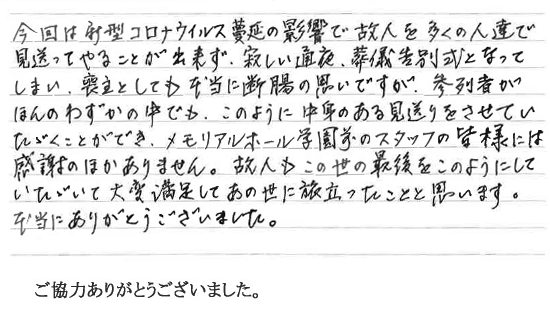 今回は新型コロナウイルス蔓延の影響で故人を多くの人達で
見送ってやることが出来ず、寂しい通夜、葬儀告別式となって
しまい、喪主としても本当に断腸の思いですが、参列者が
ほんのわずかの中でも、このように中身のある見送りをさせてい
ただくことができ、メモリアルホール学園前のスタッフの皆様には
感謝のほかありません。故人もこの世の最後をこのようにして
いただいて大変満足してあの世に旅立ったことと思います。
本当にありがとうございました。
ご協力ありがとうございました。